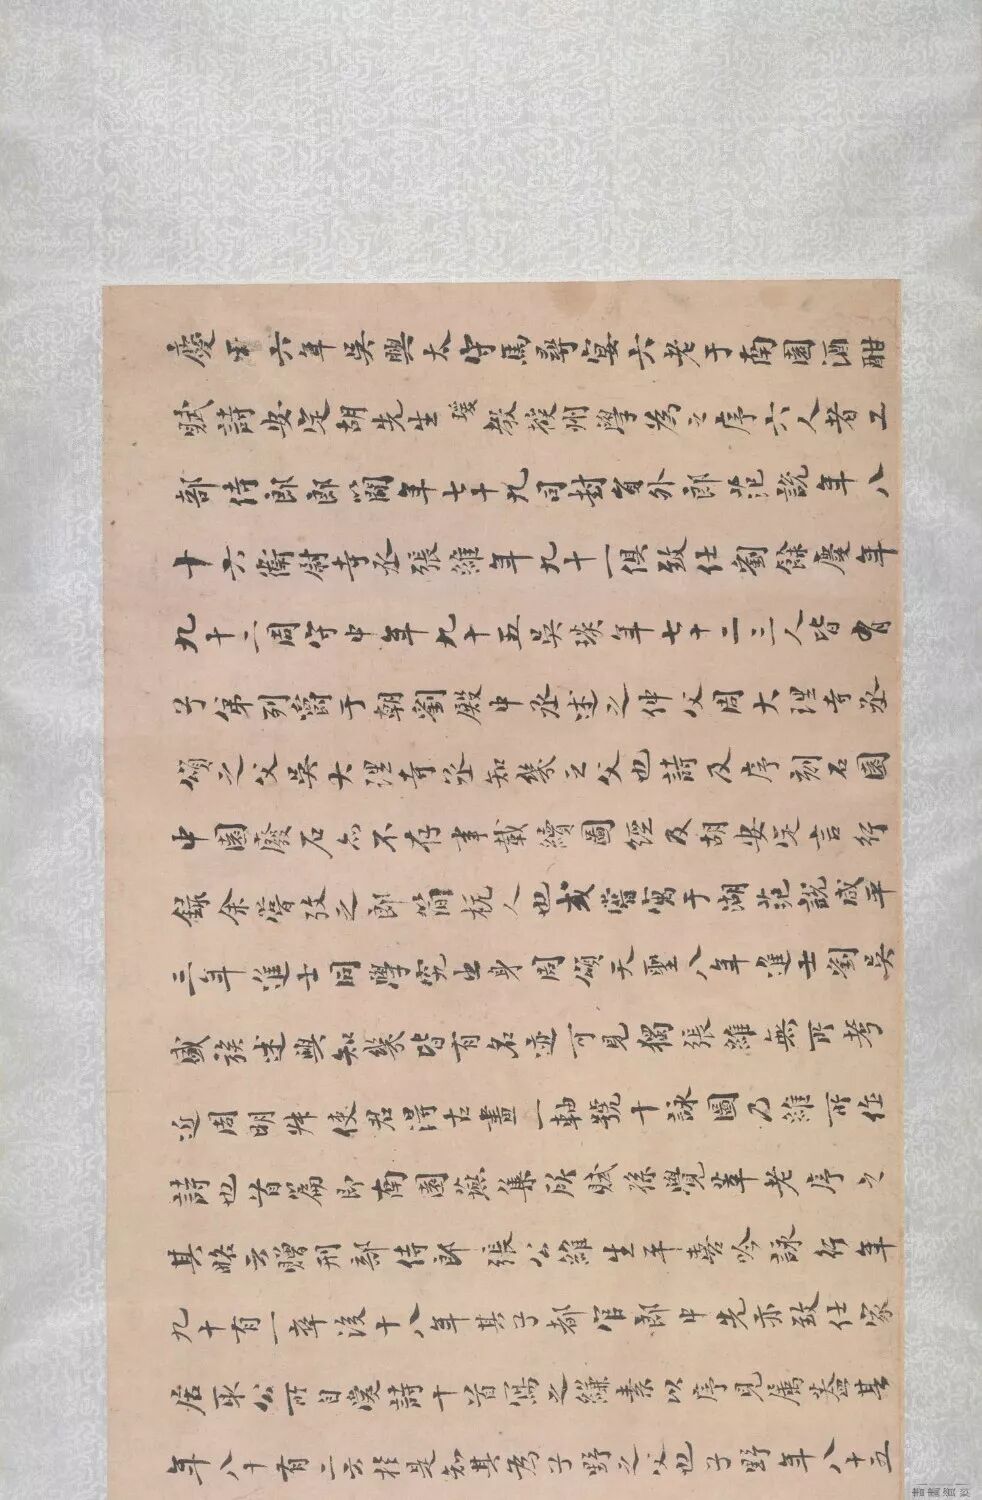 慶曆六年吳興太守馬尋宴六老于南園酒酣
賦詩安定胡先生瑗教授州學為之序六人者工
部侍郎郎簡年七十九司封員外郎范說年八
十六衛尉寺丞張維年九十一俱致仕劉餘慶年
九十二周守中年九十五吳琰年七十二三人皆有
子弟列爵于朝劉殿中丞述之仲父周大理寺丞
頌之父吳大理寺丞知幾之父也詩及序刻石園
中園廢石亦不存事載續圖經及胡安定言行
錄余嘗攷之郎簡杭人也或嘗寓于湖范說咸平
三年進士同學究出身周頌天聖八年進士劉吳
盛族述與知幾皆有名迹可見獨張維無所考
近周明叔使君得古畫一軸號十詠圖乃維所作
詩也首篇即南園燕集所賦孫覺莘老序之
其略云贈刑部侍郎張公維生平喜吟詠行年
九十有一卒後十八年其子都官郎中先亦致仕家
居取公所自愛詩十首寫之縑素以序見屬蓋其
年八十有二云於是知其為子野之父也子野年八十五